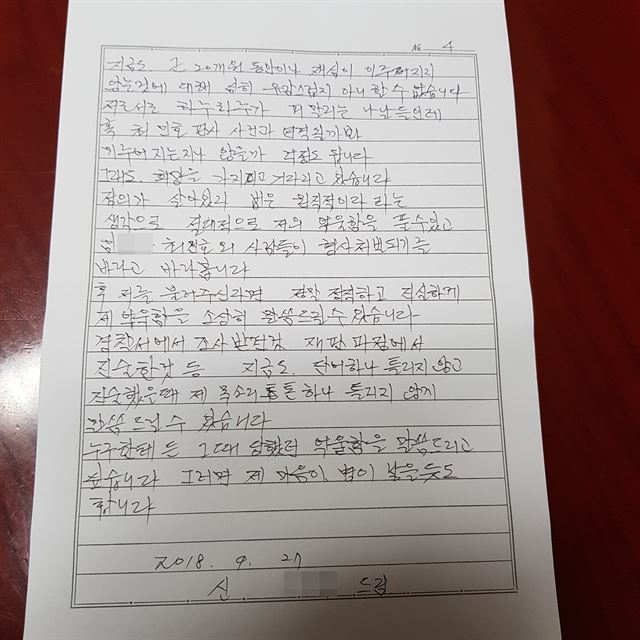 No. 4
지금도 근 20개월 동안이나 재심이 이루어지지
않는것에 대해 심히 유감스럽지 아니할 수 없습니다
저로서는 하루하루가 피 말리는 나날들인데
혹 최인호 판사 사건과 연격될가봐
이루어 지는지나 않을까 걱정도 됩니다
그래도 희망을 가지고 기다리고 있습니다
정의가 살아있고 법은 원칙적이라 라는
생각으로 절대적으로 저의 억울함을 풀수있고
최인호 외 사람들이 형사처벌되기를
바라고 바라봅니다
혹 저를 불러주신다면 정말 정확하고 진실하게
제 억울함을 소상히 말씀드릴수 있습니다
경찰서에서 조사 받던것 재판 과정에서
진술한것 등 지금도 단어하나 틀리지 않고
진술했을때 제 목소리 톤 하나 틀리지 않게
말씀 드릴 수 있습니다
누구한테 든 그때 당했던 억울함을 말씀드리고
싶습니다 그러면 제 마음이 병이 낳을듯도
합니다
2018. 9. 27
신 드림